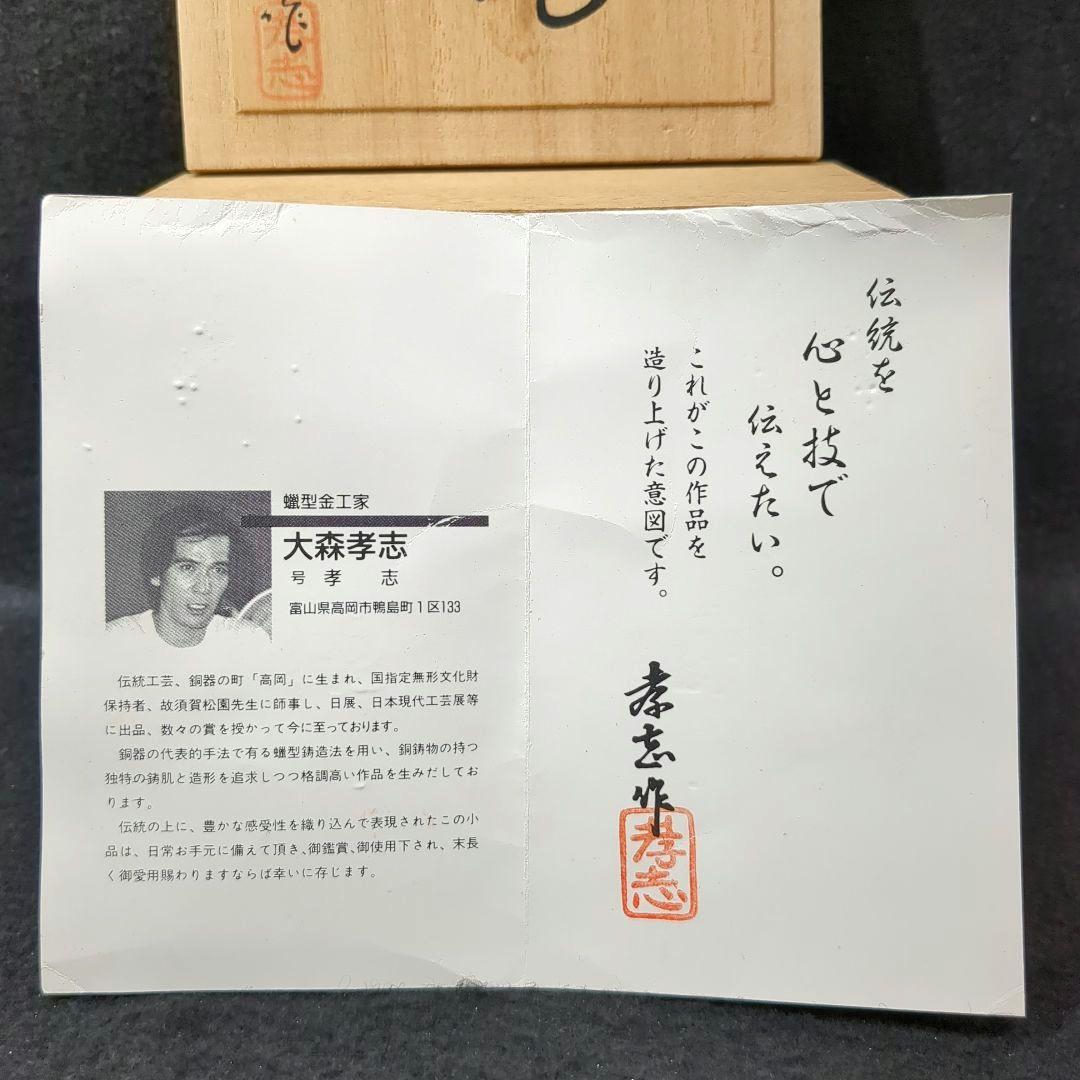 作
孝志
伝統を
心と技で
伝えたい。
これがこの作品を
造り上げた意図です。
孝志作
孝志
蠟型金工家
大森孝志
号 孝 志
富山県高岡市鴨島町1区133
伝統工芸、銅器の町「高岡」に生まれ、国指定無形文化財
保持者、故須賀松園先生に師事し、日展、日本現代工芸展等
に出品、数々の賞を授かって今に至っております。
銅器の代表的手法で有る蠟型鋳造法を用い、銅鋳物の持つ
独特の鋳肌と造形を追求しつつ格調高い作品を生みだしてお
ります。
伝統の上に、豊かな感受性を織り込んで表現されたこの小
品は、日常お手元に備えて頂き、御鑑賞、御使用下され、末長
く御愛用賜わりますならば幸いに存じます。